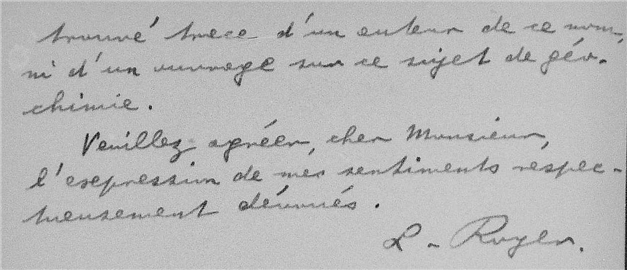 trouvé trace d'un auteur de ce nom,
ni d'un ouvrage sur ce sujet de géo-
chimie.
Veuillez agréer, cher Monsieur,
l'expression de mes sentiments respec-
tueusement dévoués.
L. Royer.